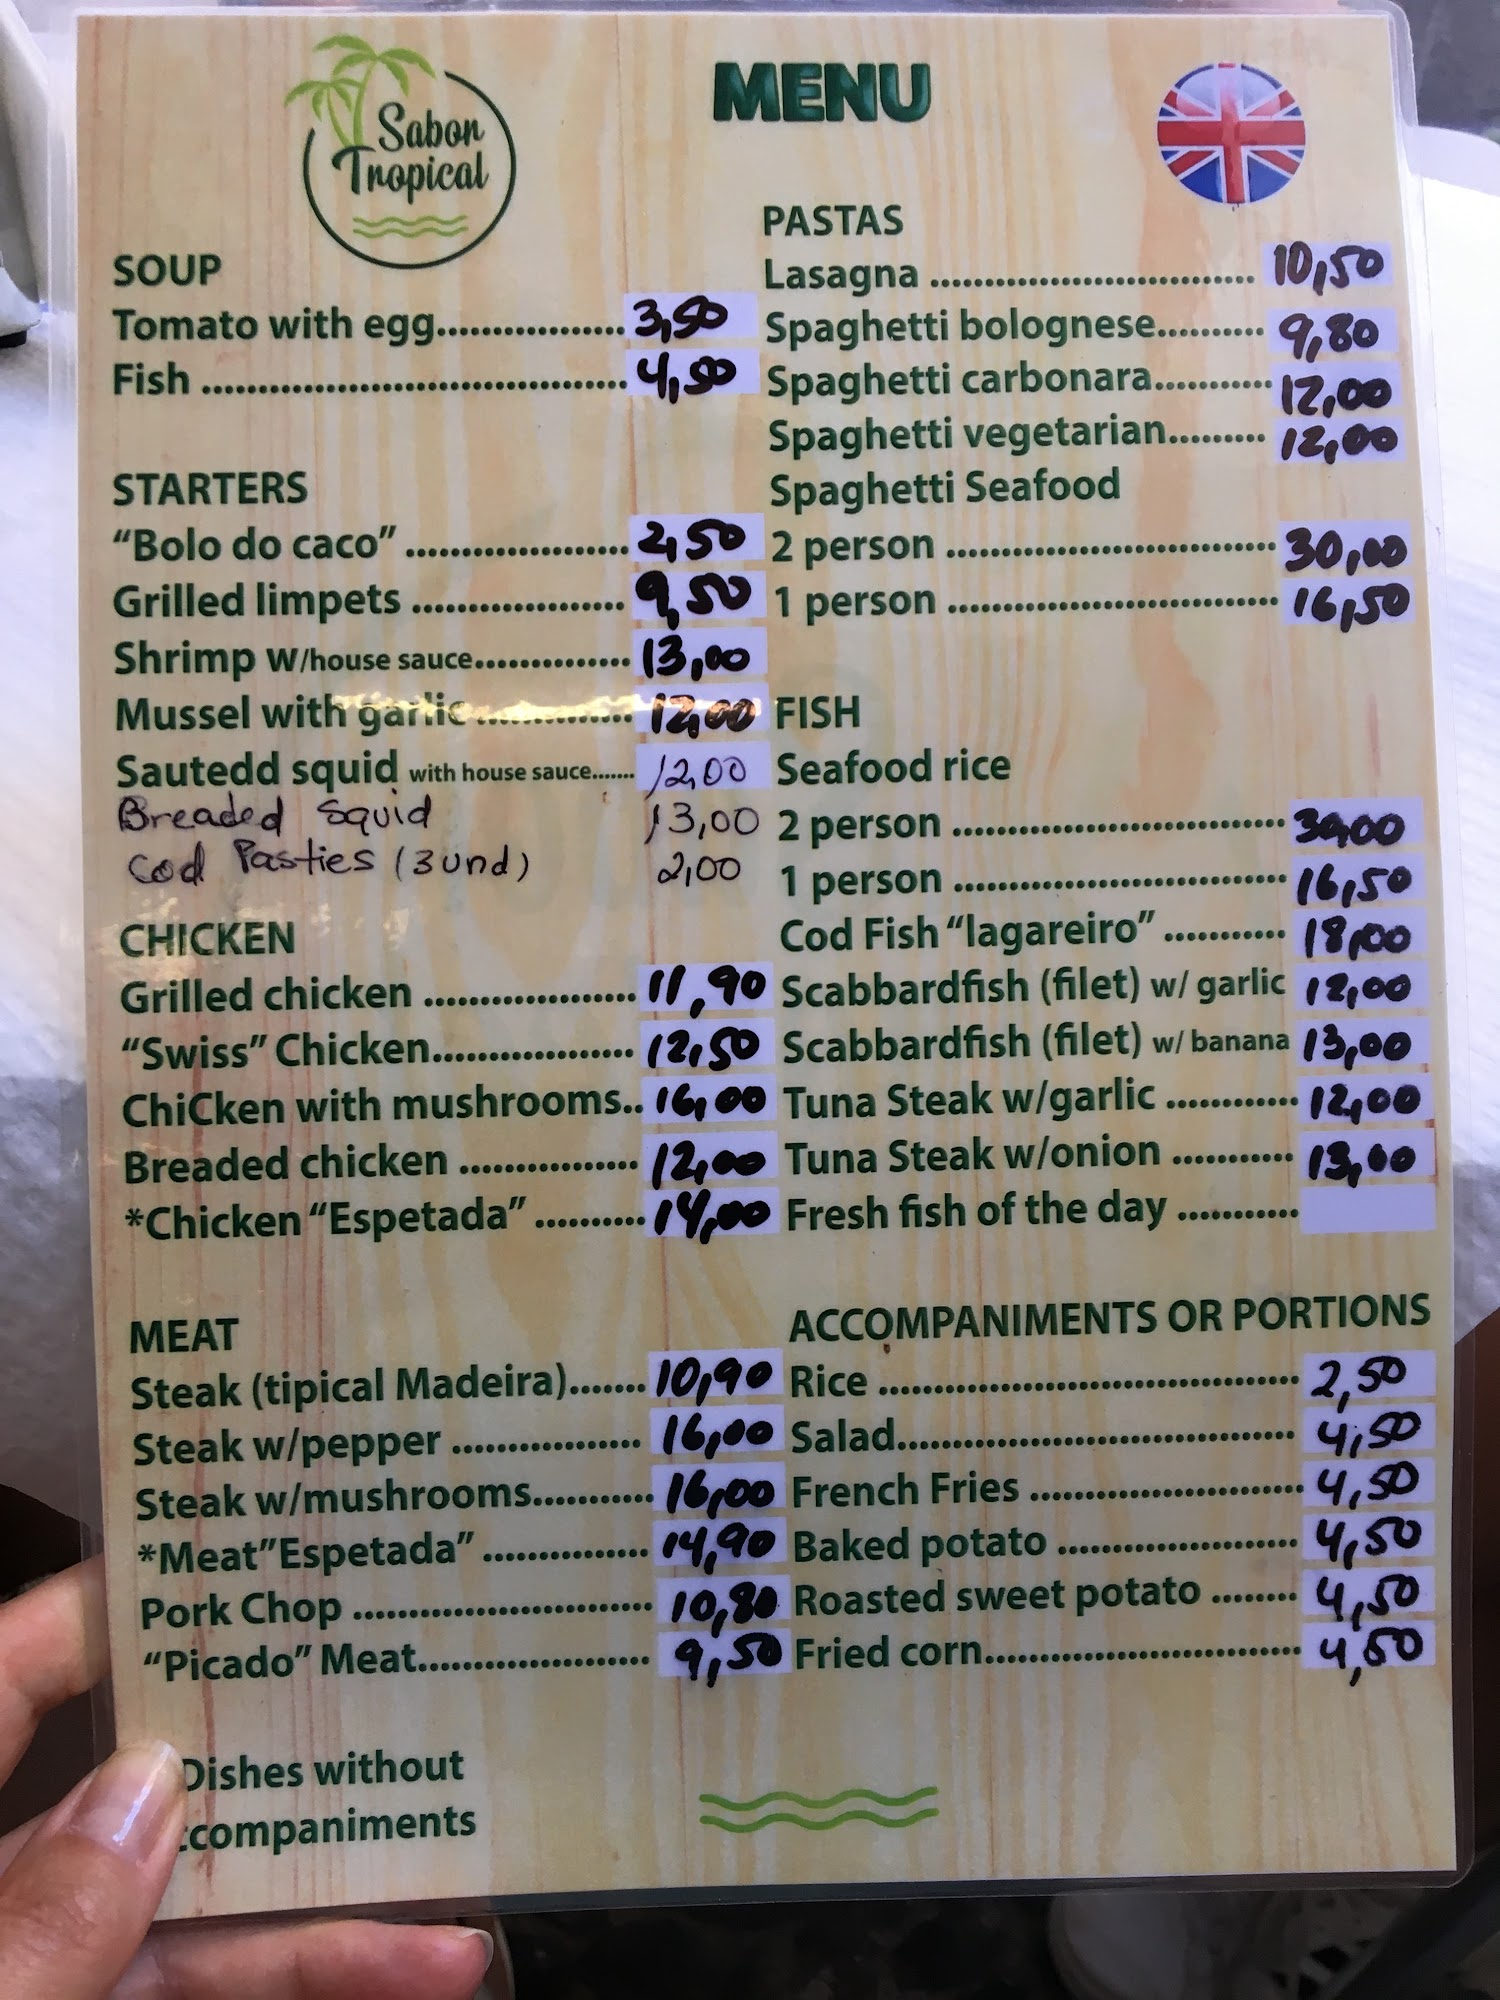 Sabor
Tropical
MENU
SOUP
Tomato with egg.................. 3,50
Fish .................................... 4,50
STARTERS
“Bolo do caco” ................... 2,50
Grilled limpets ................... 9,50
Shrimp w/house sauce.............. 13,00
Mussel with garlic .............. 12,00
Sautedd squid with house sauce....... 12,00
Breaded Squid 13,00
Cod Pasties (3 und) 2,00
CHICKEN
Grilled chicken ................... 11,90
“Swiss” Chicken................... 12,50
ChiCken with mushrooms.. 16,00
Breaded chicken ................ 12,00
*Chicken “Espetada” .......... 14,00
MEAT
Steak (tipical Madeira)....... 10,90
Steak w/pepper ................. 16,00
Steak w/mushrooms........... 16,00
*Meat”Espetada” ............... 14,90
Pork Chop ........................... 10,80
“Picado” Meat..................... 9,50
Dishes without
ccompaniments
PASTAS
Lasagna ............................ 10,50
Spaghetti bolognese.......... 9,80
Spaghetti carbonara........... 12,00
Spaghetti vegetarian......... 12,00
Spaghetti Seafood
2 person ............................. 30,00
1 person ............................. 16,50
FISH
Seafood rice
2 person ............................. 30,00
1 person ............................. 16,50
Cod Fish “lagareiro” ........... 18,00
Scabbardfish (filet) w/ garlic 12,00
Scabbardfish (filet) w/ banana 13,00
Tuna Steak w/garlic ............ 12,00
Tuna Steak w/onion ........... 13,00
Fresh fish of the day ...........
ACCOMPANIMENTS OR PORTIONS
Rice ..................................... 2,50
Salad.................................... 4,50
French Fries ........................ 4,50
Baked potato ..................... 4,50
Roasted sweet potato ........ 4,50
Fried corn............................ 4,50